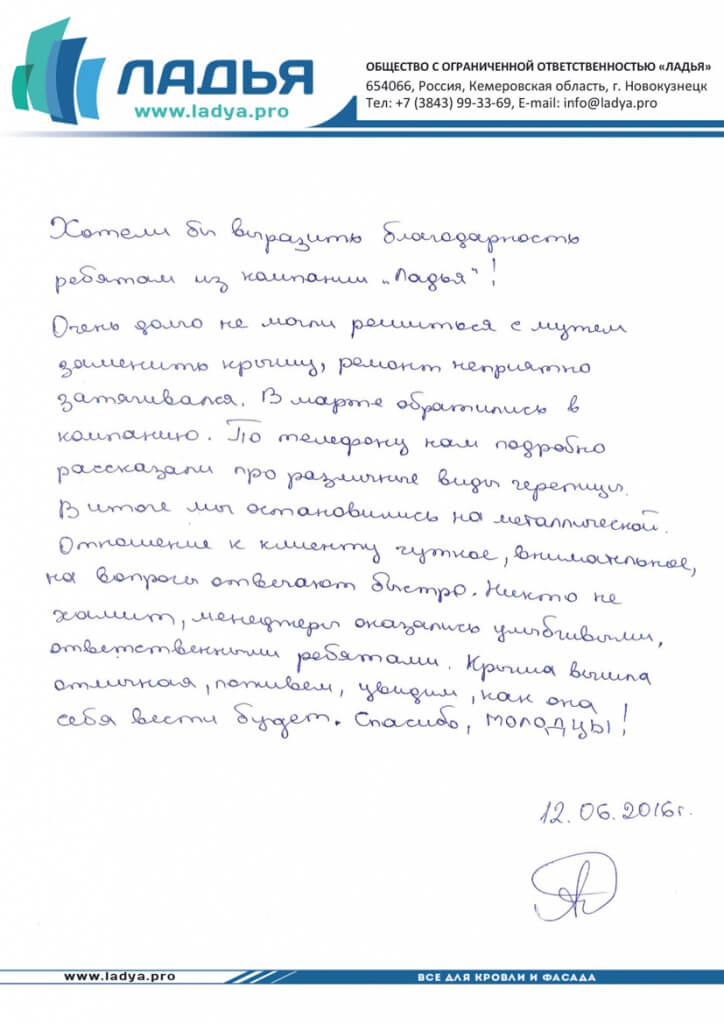 ЛАДЬЯ
www.ladya.pro
ОБЩЕСТВО С ОГРАНИЧЕННОЙ ОТВЕТСТВЕННОСТЬЮ «ЛАДЬЯ»
654066, Россия, Кемеровская область, г. Новокузнецк
Тел: +7 (3843) 99-33-69, E-mail: info@ladya.pro
Хотели бы выразить благодарность
ребятам из компании „Ладья"!
Очень долго не могли решиться с мужем
заменить крышу, ремонт неприятно
затягивался. В марте обратились в
компанию. По телефону нам подробно
рассказали про различные виды черепицы.
В итоге мы остановились на металлической.
Отношение к клиенту чуткое, внимательное,
на вопросы отвечают быстро. Никто не
хамит, менеджеры оказались улыбчивыми,
ответственными ребятами. Крыша вышла
отличная, поживем, увидим, как она
себя вести будет. Спасибо, МОЛОДЦЫ!
12.06.2016г.
www.ladya.pro
ВСЕ ДЛЯ КРОВЛИ И ФАСАДА